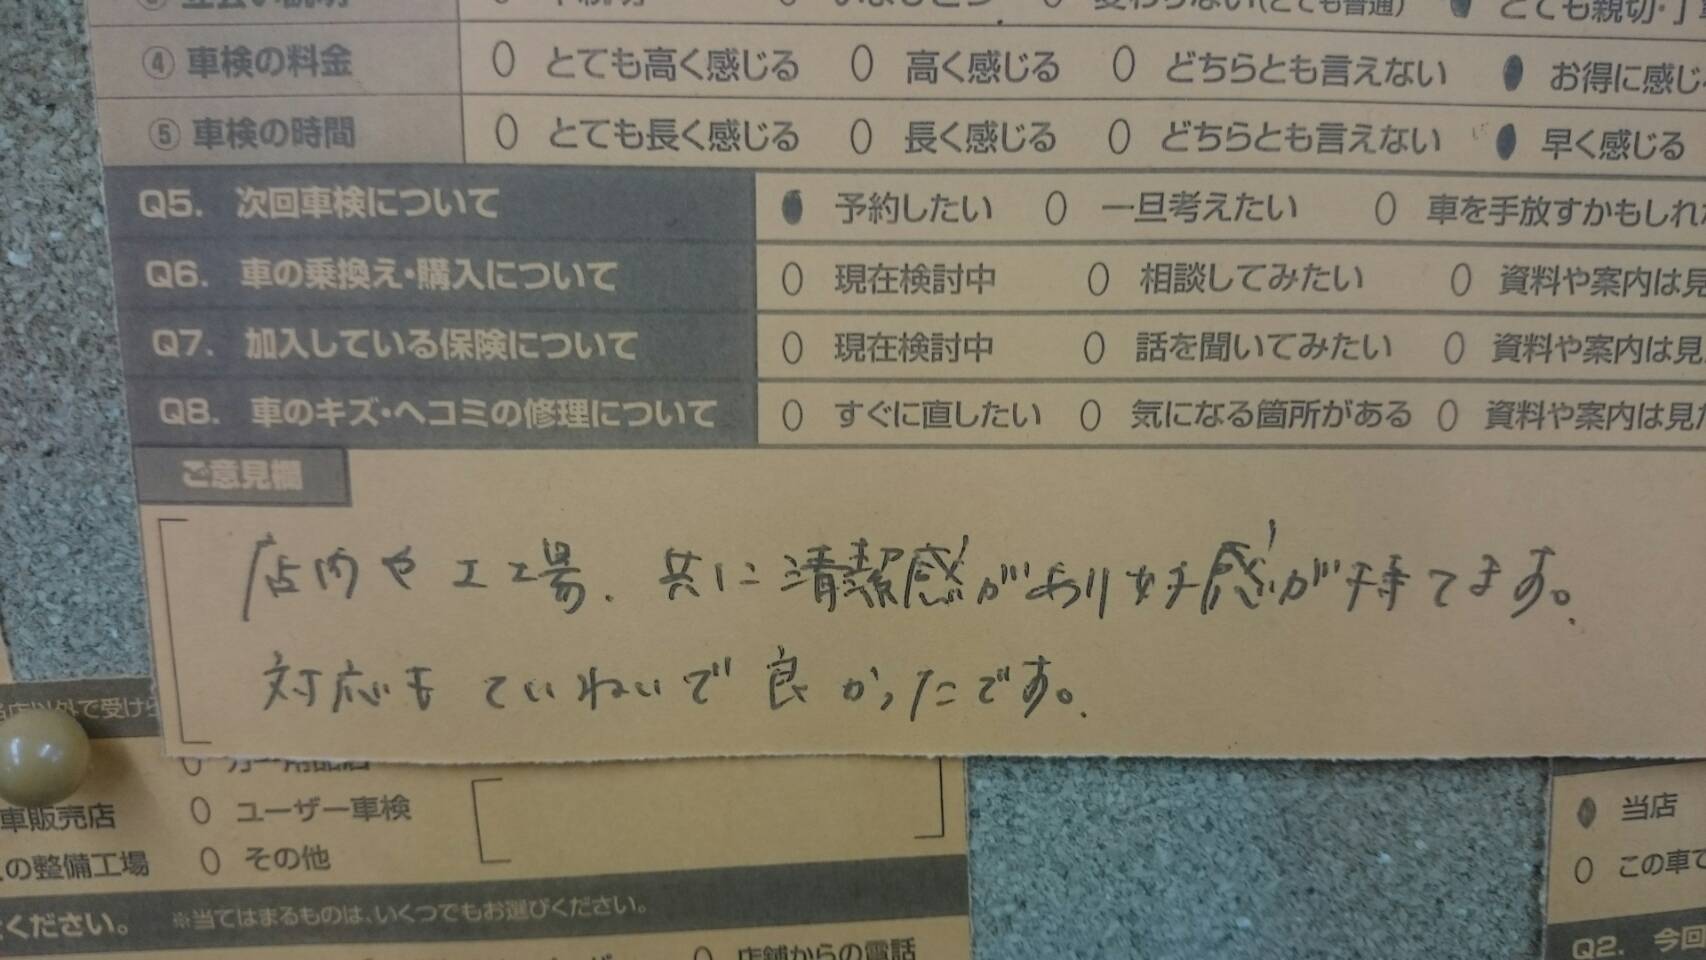 ④ 車検の料金 とても高く感じる 高く感じる どちらとも言えない お得に感じ
⑤ 車検の時間 とても長く感じる 長く感じる どちらとも言えない 早く感じる
Q5. 次回車検について 予約したい 一旦考えたい 車を手放すかもしれ
Q6. 車の乗換え・購入について 現在検討中 相談してみたい 資料や案内は見
Q7. 加入している保険について 現在検討中 話を聞いてみたい 資料や案内は見
Q8. 車のキズ・ヘコミの修理について すぐに直したい 気になる箇所がある 資料や案内は見
ご意見欄
店内や工場、共に清潔感があり好感が持てます。
対応もていねいで良かったです。
以外で受け
車販売店 ユーザー車検
の整備工場 その他
ください。 ※当てはまるものは、いくつでもお選びください。
店舗からの電話
当店
この車で
Q2. 今回